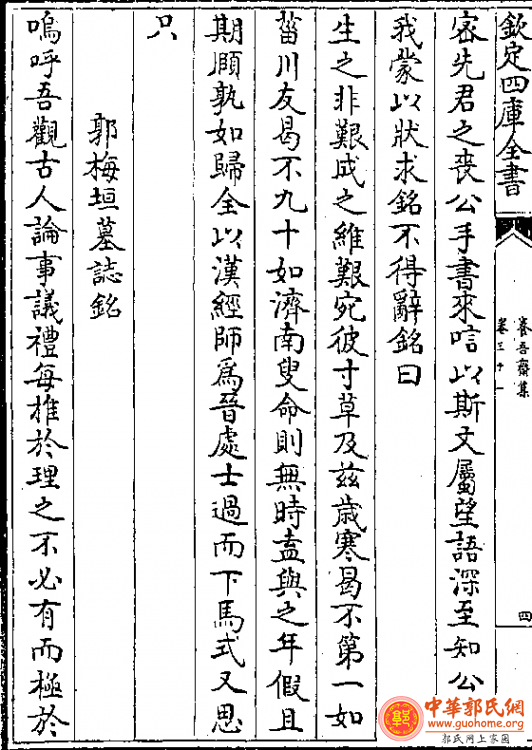 欽定四庫全書
養吾齋集
卷三十一
四
宻先君之喪公手書來唁以斯文屬望語深至知公
我蒙以狀求銘不得辭銘曰
生之非艱成之維艱宛彼寸草及兹歳寒曷不第一如
菑川友曷不九十如濟南叟命則無時盍與之年假且
期頤孰如歸全以漢經師爲晉處士過而下馬式又思
只
郭梅垣墓誌銘
嗚呼吾觀古人論事議禮每推於理之不必有而極於
中華郭氏網
www.guohome.org
郭氏网上家園